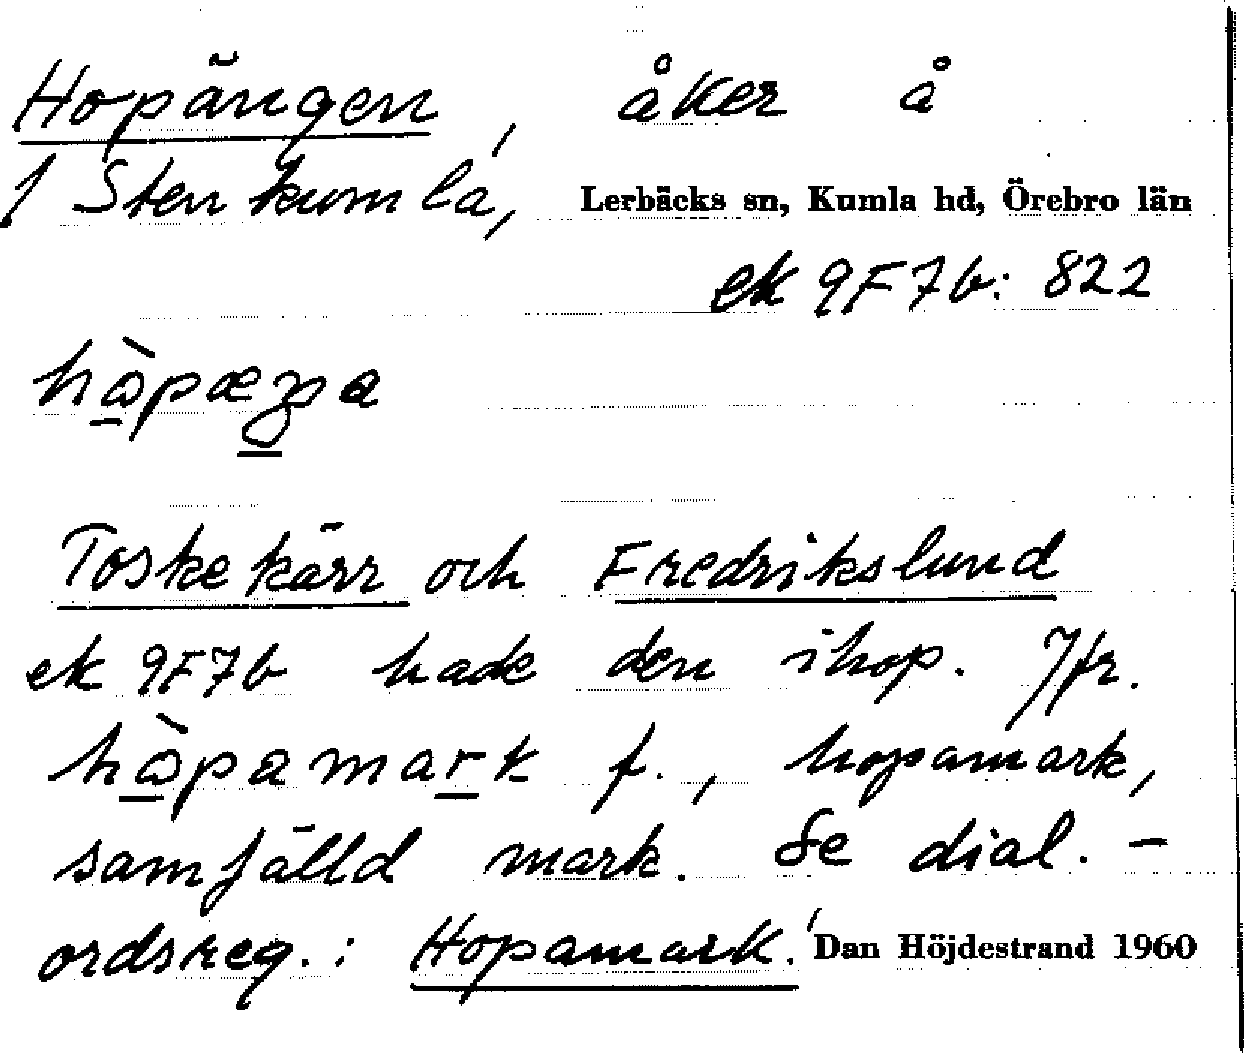 Hopängen, åker å
1 Stenkumla, Lerbäcks sn, Kumla hd, Örebro län
ek 9F7b: 822
Toskekärr och Fredrikslund
ek 9F7b hade den ihop. Jfr.
hòpamark f., hopamark,
samfälld mark. Se dial. -
ordsreg.: Hopamark! Dan Höjdestrand 1960